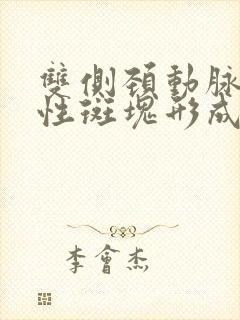 雙側頚動脉
性斑塊形成
李會杰